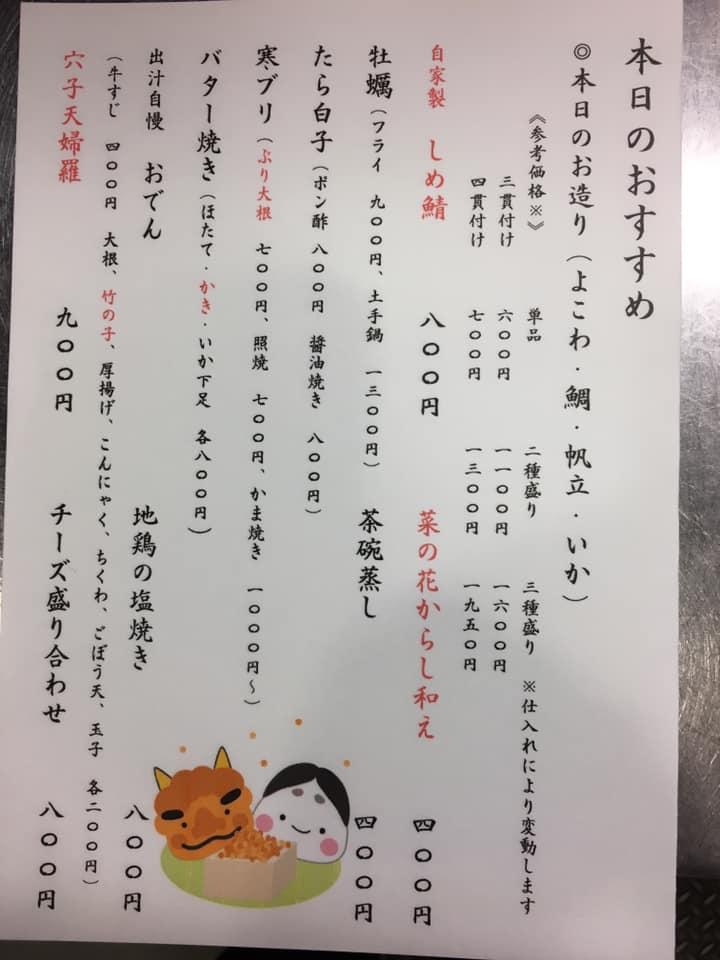 本日のおすすめ
◎本日のお造り（よこわ・鯛・帆立・いか）
《参考価格※》　単品　二種盛り　三種盛り　※仕入れにより変動します
三貫付け　六〇〇円　一一〇〇円　一六〇〇円
四貫付け　七〇〇円　一三〇〇円　一九五〇円
自家製　しめ鯖　八〇〇円　菜の花からし和え　四〇〇円
牡蠣（フライ　九〇〇円、土手鍋　一三〇〇円）　茶碗蒸し　四〇〇円
たら白子（ポン酢　八〇〇円　醤油焼き　八〇〇円）
寒ブリ（ぶり大根　七〇〇円、照焼　七〇〇円、かま焼き　一〇〇〇円～）
バター焼き（ほたて・かき・いか下足　各八〇〇円）
出汁自慢　おでん　地鶏の塩焼き　八〇〇円
（牛すじ　四〇〇円　大根、竹の子、厚揚げ、こんにゃく、ちくわ、ごぼう天、玉子　各二〇〇円）
穴子天婦羅　九〇〇円　チーズ盛り合わせ　八〇〇円